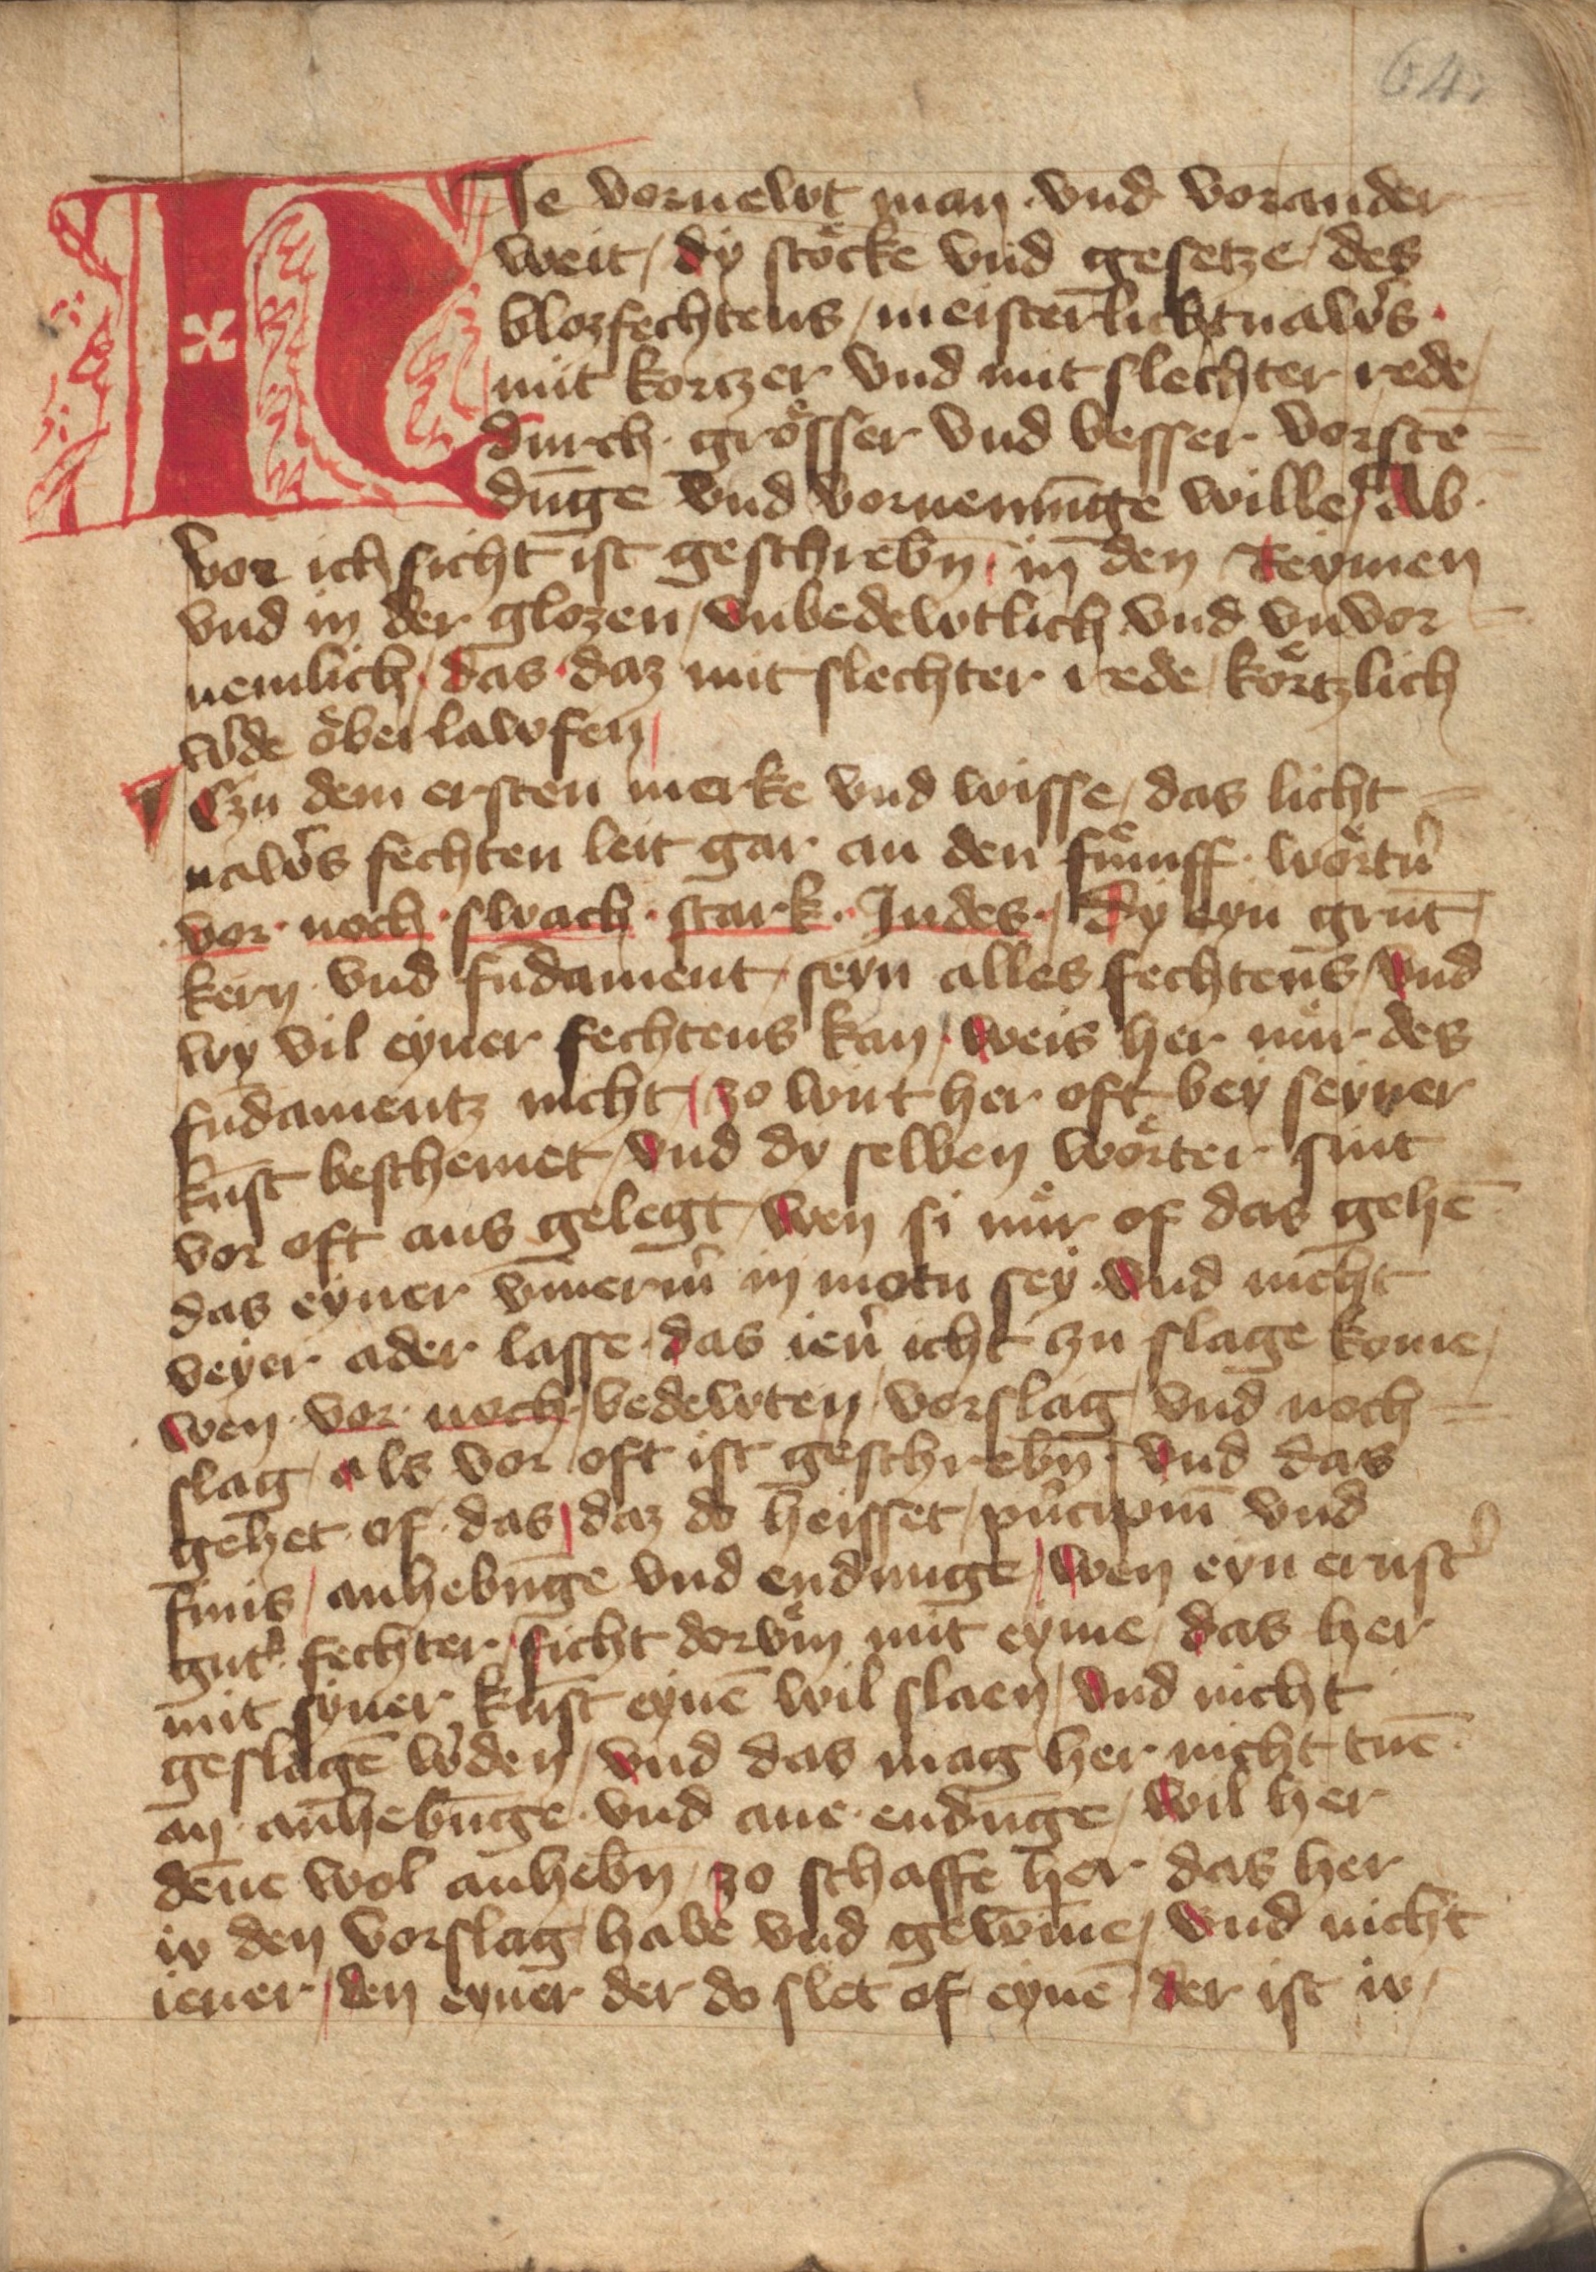 64.
Hie vornewt man vnd vorander
weit / dy stöcke vnd gesetze / des
blozfechtens / meister lichtnawers
mit kortzer vnd mit slechter rede /
durch grösser vnd besser vorstē
dūge vnd vornemūge wille / Ab
vor icht ist geschrebn̄ in den Reymen
vnd in der glozen / vnbedewtlich vnd vnvor
nemlich / das daz mit slechter rede / körtzlich
w'de öberlawfen /
Czu dem ersten merke vnd wisse / das licht
naw's fechten leit gar an den fümff wörtn̄
vor noch swach stark Indes / Dy eyn grūt /
kern vnd fūdament / seyn alles fechtens / vnd
wy vil eyner fechtens kan / weis her nür des
fūdamentz nicht / zo wirt her oft bey seyner
kunst beschemet / vnd dy selben wörter sint
vor oft aus gelegt / wen si nür of das gehē
das eyner ūmerm̄ in motu sey vnd nicht
veyer ader lasse das ien' icht zu slage kome /
wen vor noch / bedewten / vorslag / vnd noch
slag / als vor oft ist geschrebn̄ vnd das
gehet of das / daz do heisset / principiū vnd
finis / anhebūge vnd endunge / wen eyn ernst'
gut' fechter / ficht dorüm mit eyme / das her
mit syner kunst eynē wil slaen / vnd nicht
geslagē w'den / vnd das mag her nicht tuē
an anhebūge vnd ane endūge / wil her
denne wol anhebn̄ / zo schaffe her das her
io den vorslag habe vnd gewīne / vnd nicht
iener / den eyner der do slet of eynē der ist io /